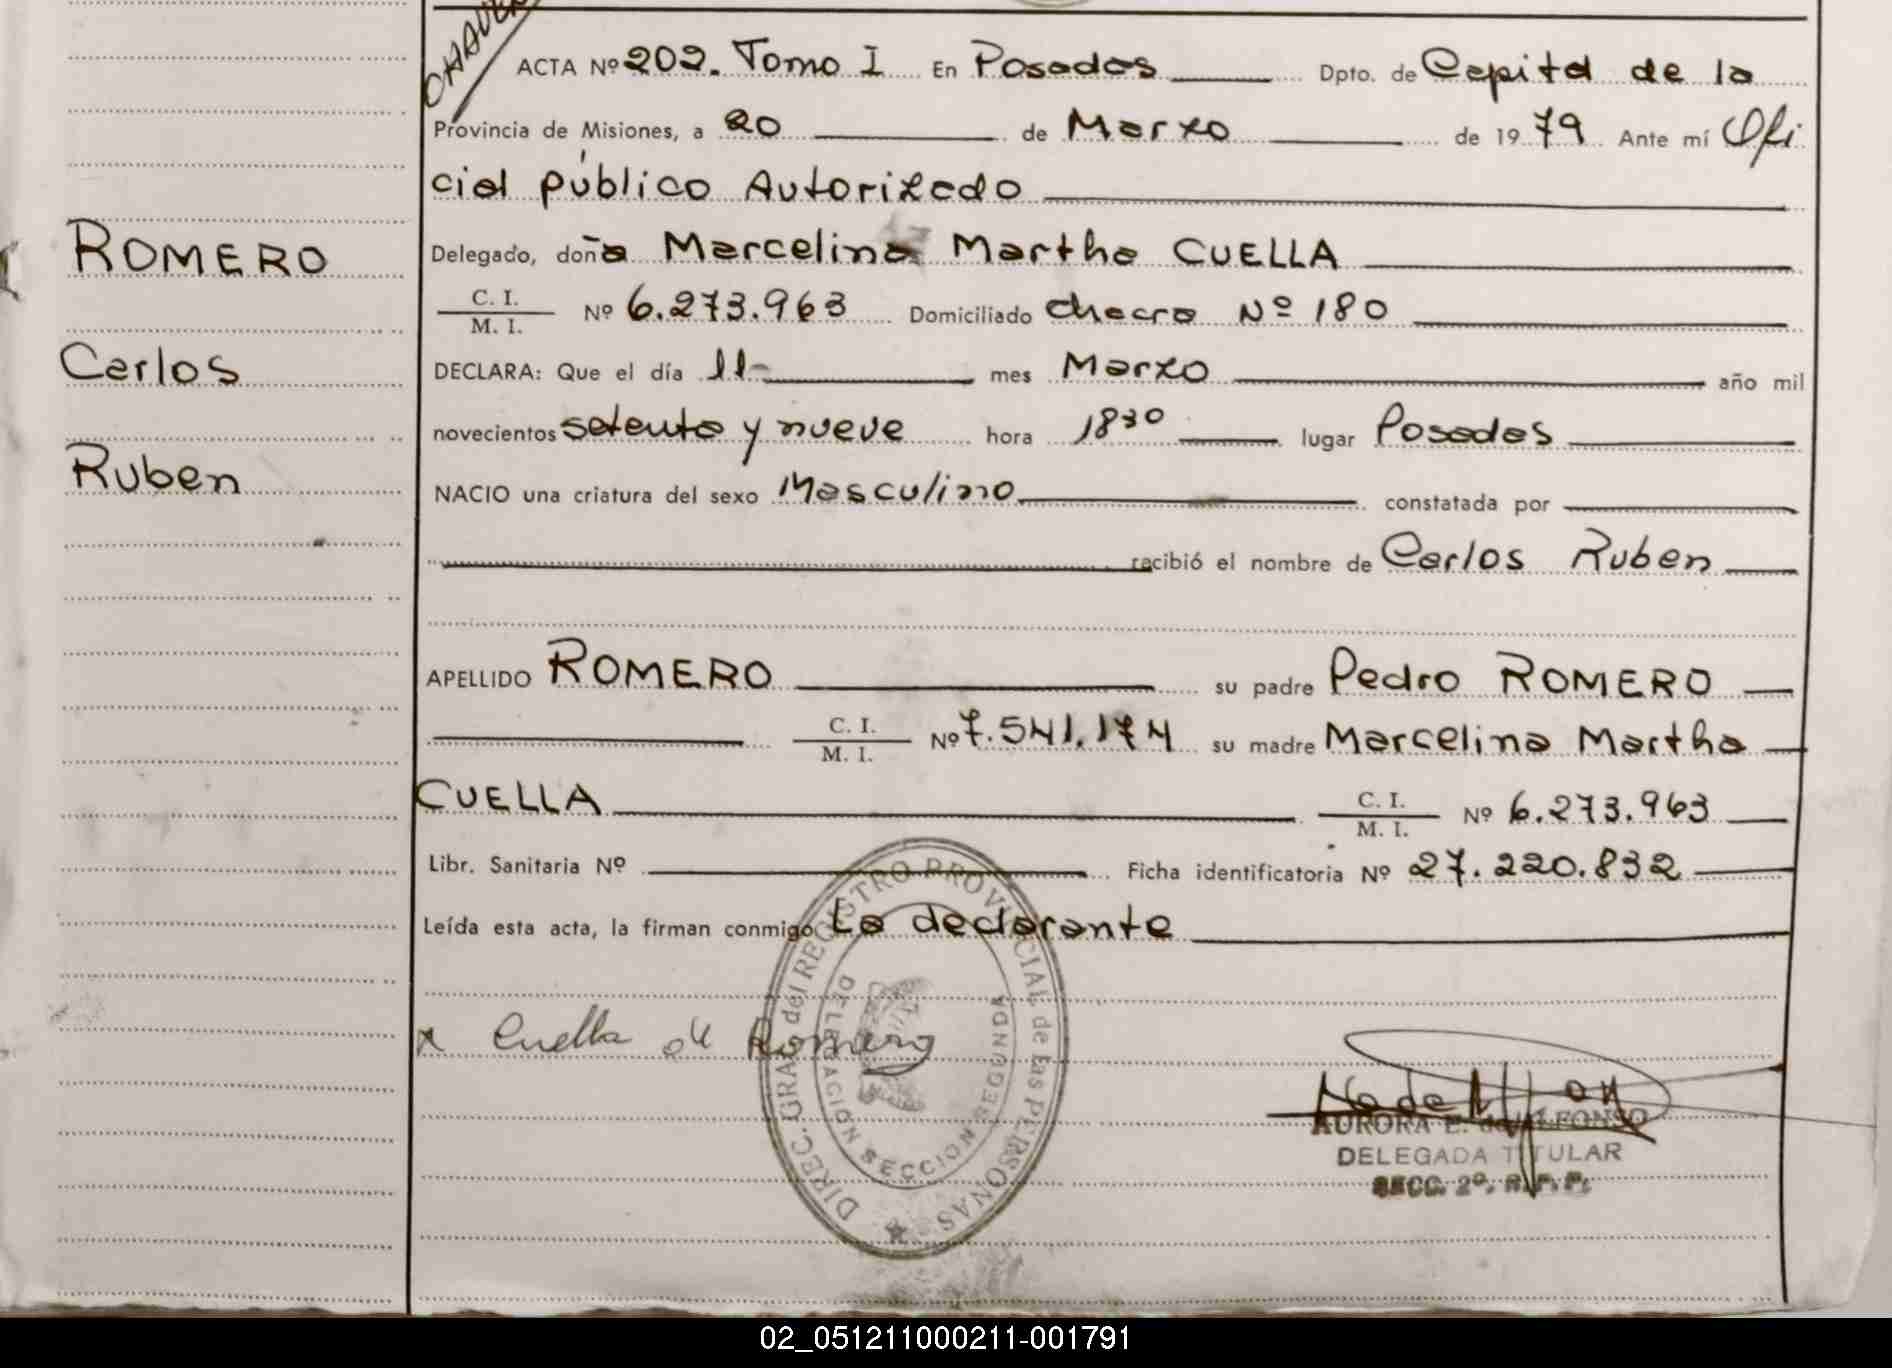 CHAVE
ACTA Nº 202. Tomo I En Posadas Dpto. de Capital de la
Provincia de Misiones, a 20 de Marzo de 1979 Ante mí Ofi
cial público Autorizado
ROMERO
Delegado, doña Marcelina Martha CUELLA
C. I. / M. I. Nº 6.273.963 Domiciliado Chacra Nº 180
Carlos
DECLARA: Que el día 11 mes Marzo año mil
novecientos setenta y nueve hora 18³⁰ lugar Posadas
Ruben
NACIO una criatura del sexo Masculino constatada por
recibió el nombre de Carlos Ruben
APELLIDO ROMERO su padre Pedro ROMERO
C. I. / M. I. Nº 7.541.174 su madre Marcelina Martha
CUELLA C. I. / M. I. Nº 6.273.963
Libr. Sanitaria Nº Ficha identificatoria Nº 27.220.832
Leída esta acta, la firman conmigo La declarante
x Cuella de Romero
DIREC. GRAL del REGISTRO PROVINCIAL de las PERSONAS
DELEGACION SECCION SEGUNDA
AURORA E. de ALFONSO
DELEGADA TITULAR
SECC. 2º. R. P. P.
02_051211000211-001791